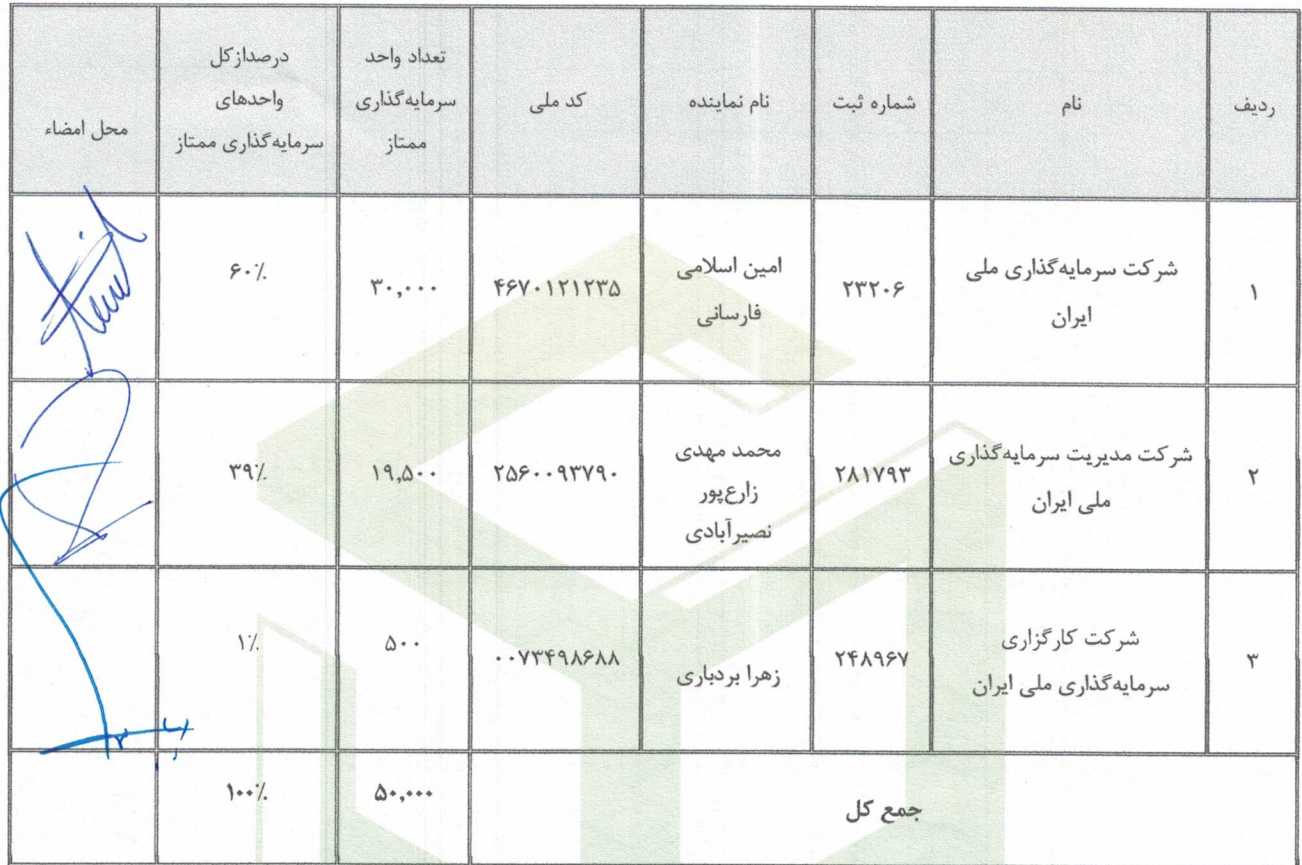 ردیف
نام
شماره ثبت
نام نماینده
کد ملی
تعداد واحد
سرمایه‌گذاری
ممتاز
درصدازکل
واحدهای
سرمایه‌گذاری ممتاز
محل امضاء
۱
شرکت سرمایه‌گذاری ملی
ایران
۲۳۲۰۶
امین اسلامی
فارسانی
۴۶۷۰۱۲۱۲۳۵
۳۰,۰۰۰
۶۰٪
۲
شرکت مدیریت سرمایه‌گذاری
ملی ایران
۲۸۱۷۹۳
محمد مهدی
زارع‌پور
نصیرآبادی
۲۵۶۰۰۹۳۷۹۰
۱۹,۵۰۰
۳۹٪
۳
شرکت کارگزاری
سرمایه‌گذاری ملی ایران
۲۴۸۹۶۷
زهرا بردباری
۰۰۷۳۴۹۸۶۸۸
۵۰۰
۱٪
جمع کل
۵۰,۰۰۰
۱۰۰٪